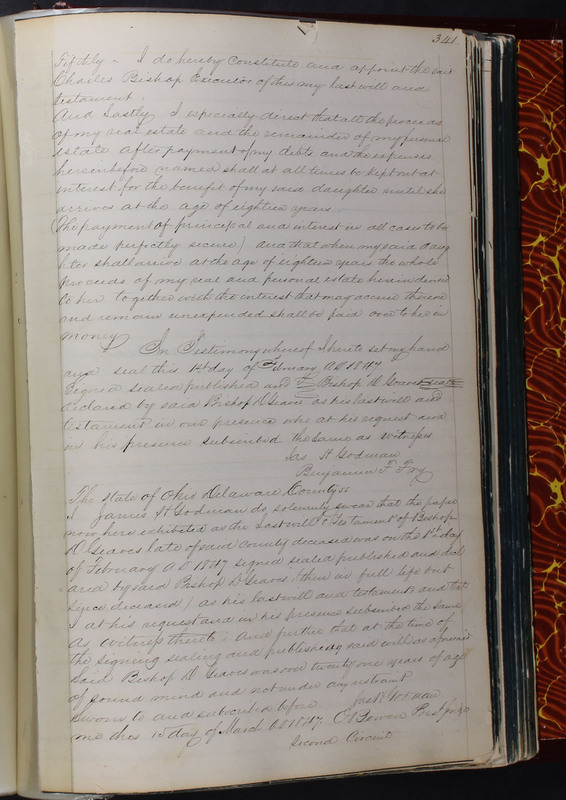 341
Fifthly - I do hereby Constitute and appoint the said
Charles Bishop Executor of this my last will and
testament.
And Lastly, I especially direct that all the proceeds
of my real estate and the remainder of my personal
estate after payment of my debts and the expenses
hereinbefore named shall at all times be kept out at
interest for the benefit of my said daughter until she
arrives at the age of eighteen years
(the payment of principal and interest in all cases to be
made perfectly secure) and that when my said daug
hter shall arrive at the age of eighteen years the whole
proceeds of my real and personal estate herein devised
to her together with the interest that may accrue thereon
and remain unexpended shall be paid over to her in
money
In Testimony whereof I hereto set my hand
and seal this 1st day of February AD 1847
Signed sealed published and Bishop D Geaves seal
declared by said Bishop D Geaves as his last will and
testament in our presence who at his request and
in his presence subscribed the same as witnesses
Jas H Godman
Benjamin F Fry
The State of Ohio Delaware County ss
I James H Godman do solemnly swear that the paper
now here exhibited as the Last will & Testament of Bishop
D Geaves late of said County deceased was on the 1st day
of February AD 1847 signed sealed published and decl
ared by said Bishop D Geaves (then in full life but
since deceased) as his last will and testament and that
I at his request and in his presence subscribed the same
as witness thereto; And further that at the time of
the signing sealing and publishing said will as aforesaid
said Bishop D Geaves was over twenty one years of age
of sound mind and not under any restraint
Sworn to and subscribed before Jas H Godman
me this 15 day of March AD 1847 Prest judge
Second Circuit